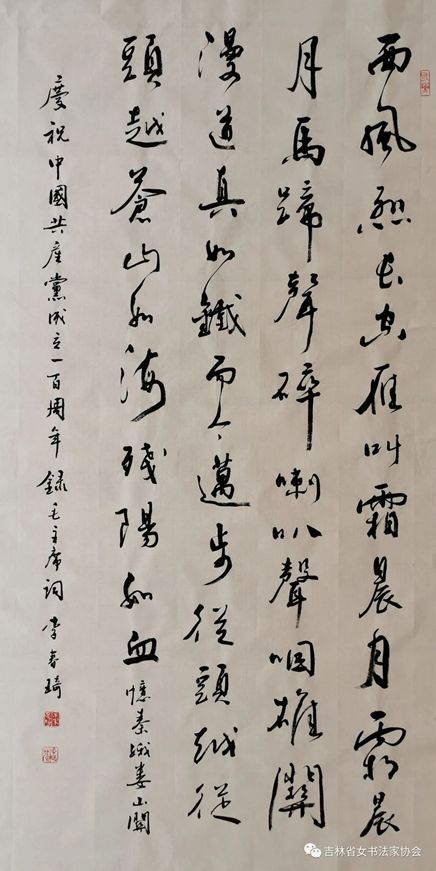 西風烈長空雁叫霜晨月霜晨
月馬蹄聲碎喇叭聲咽雄關
漫道真如鐵而今邁步從頭越從
頭越蒼山如海殘陽如血 憶秦娥婁山關
慶祝中國共産黨成立一百周年錄毛主席詞 李春琦
吉林省女书法家协会